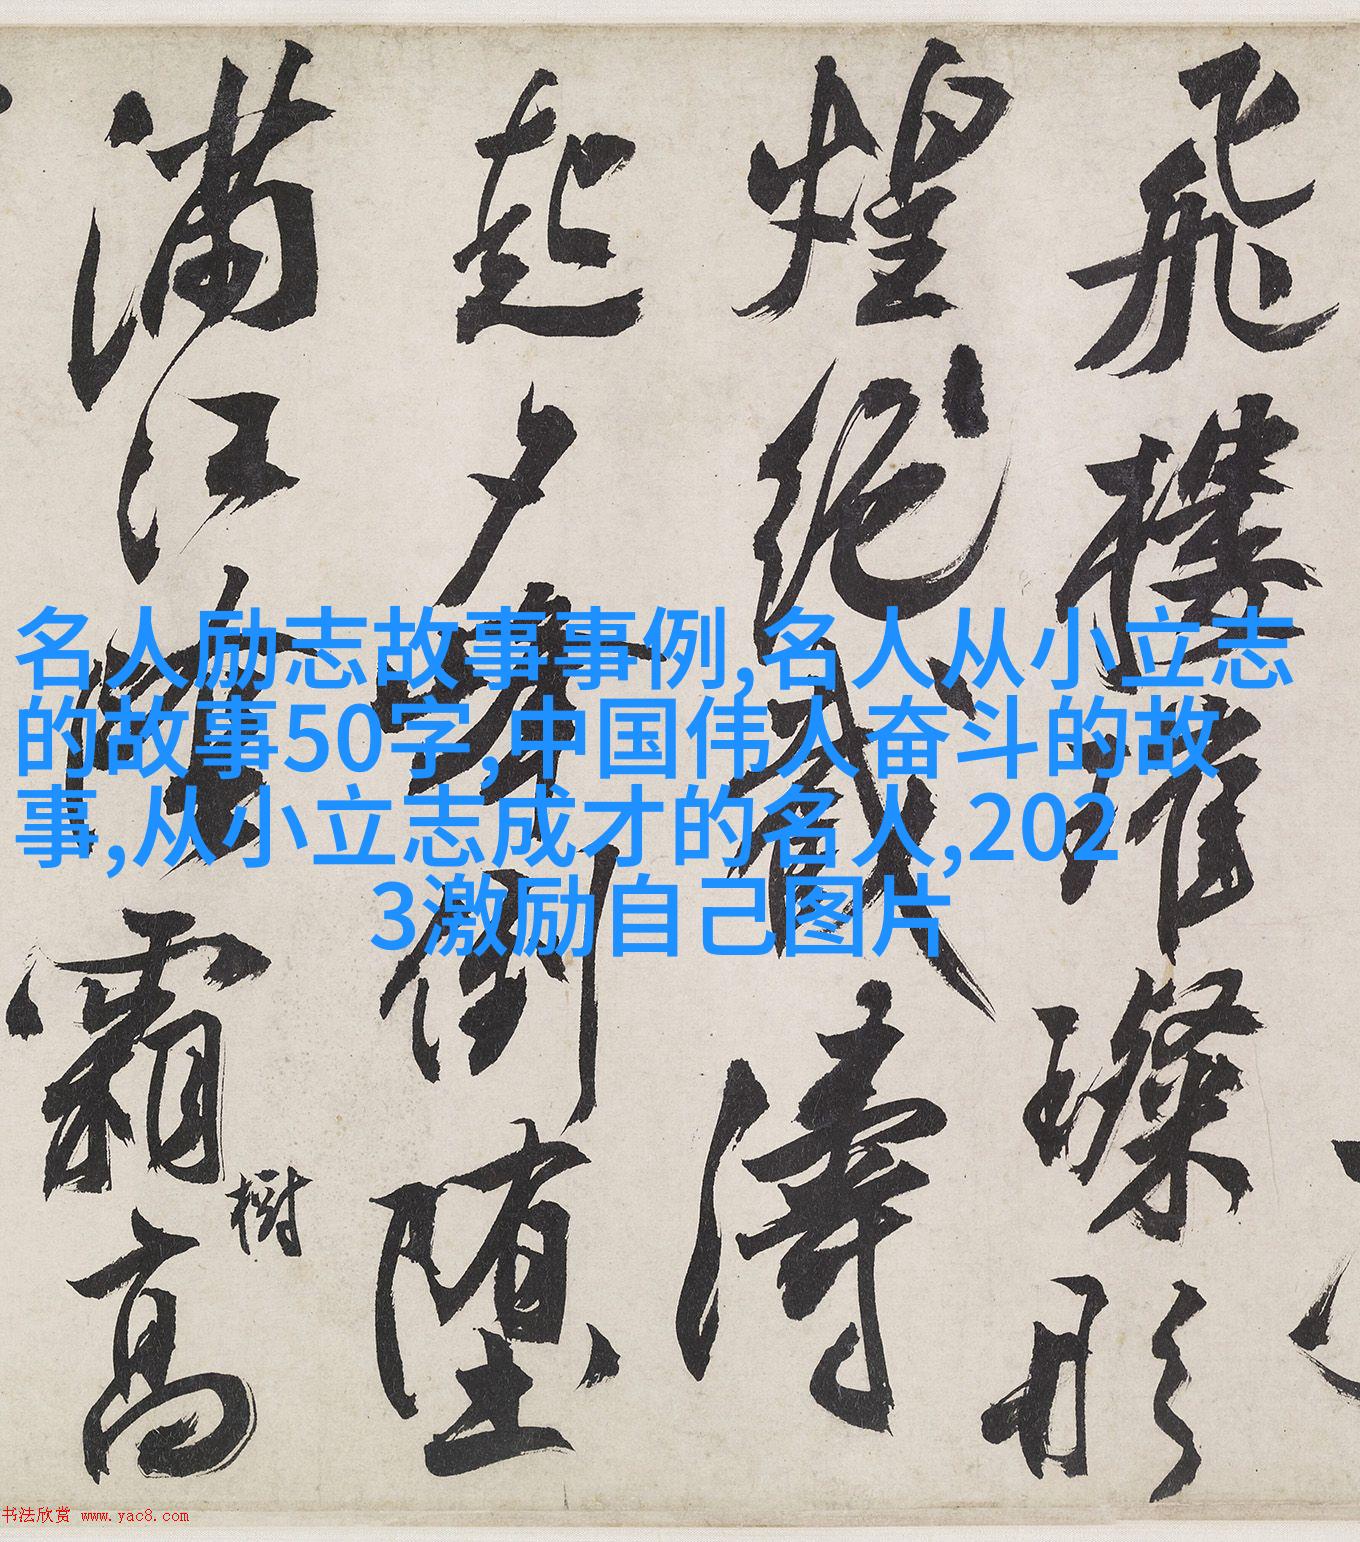 名人励志故事事例,名人从小立志
的故事50字,中国伟人奋斗的故
事,从小立志成才的名人,202
3激励自己图片
飛樓璀璨形
煌絶濤
起夕峯倒堕
滿江霜高
樹
书法欣赏 www.yac8.com